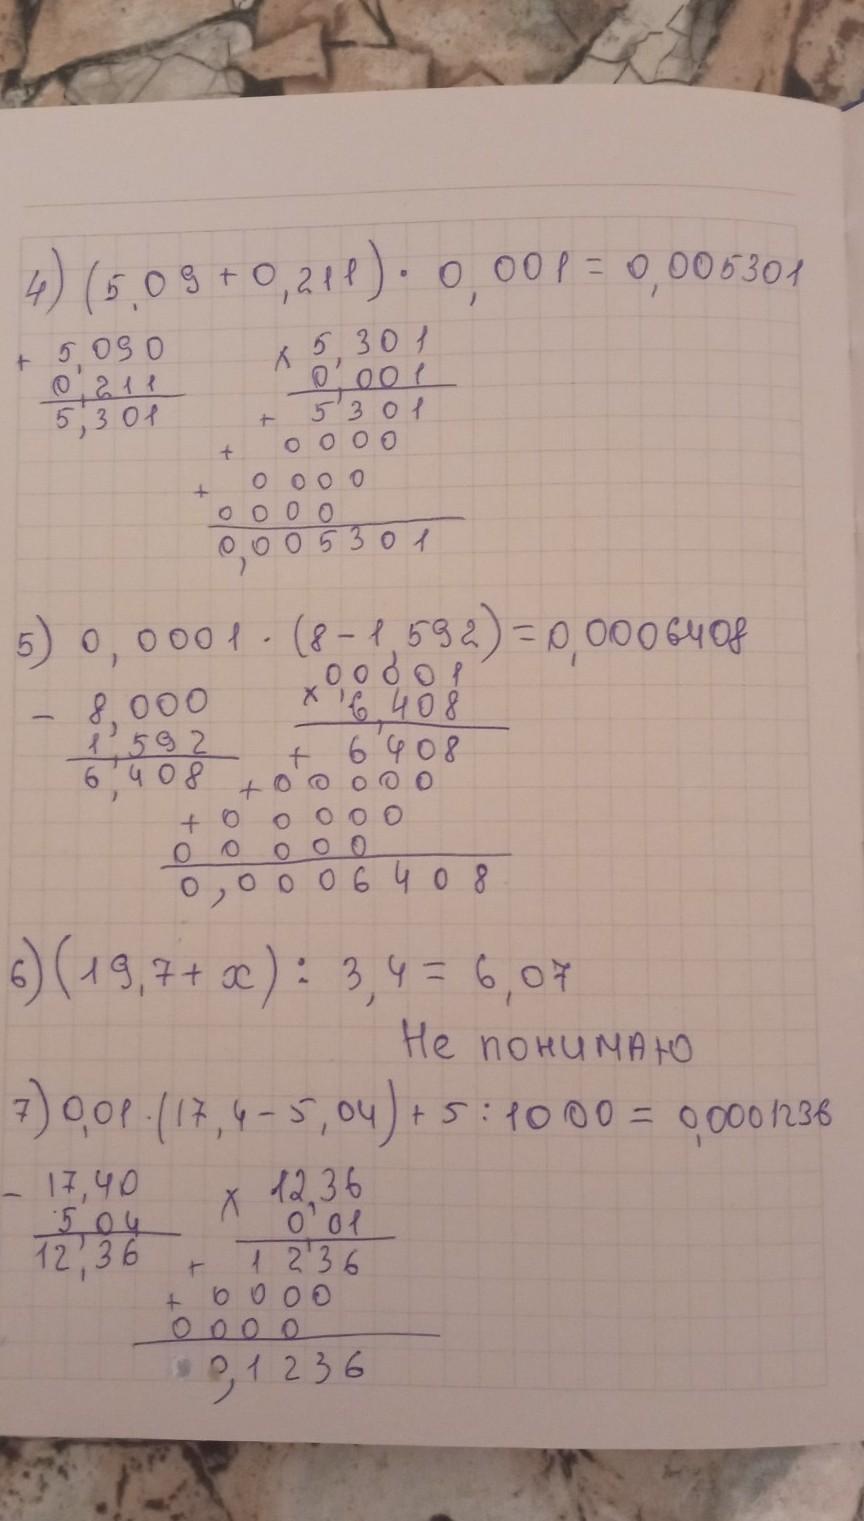 4) (5,09 + 0,211) · 0,001 = 0,005301
+ 5,090
0,211
5,301
× 5,301
0,001
+ 5301
+ 0000
+ 0000
0000
0,005301
5) 0,0001 · (8 - 1,592) = 0,0006408
- 8,000
1,592
6,408
0,0001
× 6,408
+ 6408
+ 00000
+ 00000
00000
0,0006408
6) (19,7 + x) : 3,4 = 6,07
Не понимаю
7) 0,01 · (17,4 - 5,04) + 5 : 1000 = 0,0001236
- 17,40
5,04
12,36
× 12,36
0,01
+ 1236
+ 0000
0000
0,1236